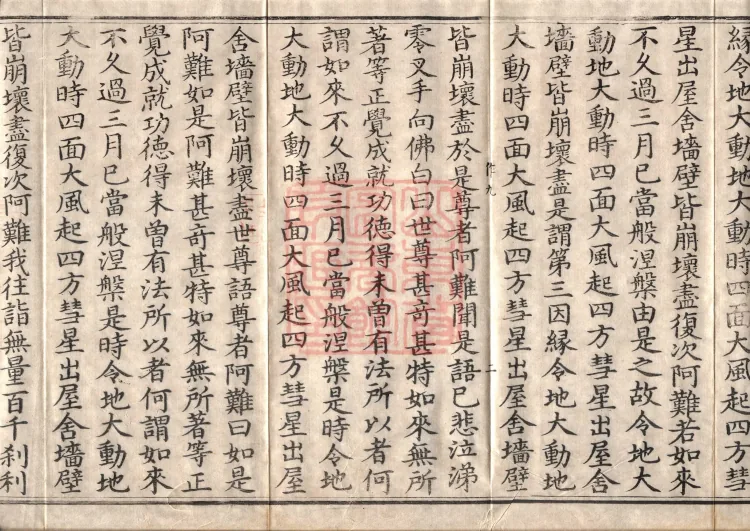 緣令地大動地大動時四面大風起四方彗
星出屋舍墻壁皆崩壞盡復次阿難若如來
不久過三月已當般涅槃由是之故令地大
動地大動時四面大風起四方彗星出屋舍
墻壁皆崩壞盡是謂第三因緣令地大動地
大動時四面大風起四方彗星出屋舍墻壁
作九
二
皆崩壞盡於是尊者阿難聞是語已悲泣涕
零叉手向佛白曰世尊甚奇甚特如來無所
著等正覺成就功德得未曾有法所以者何
謂如來不久過三月已當般涅槃是時令地
大動地大動時四面大風起四方彗星出屋
舍墻壁皆崩壞盡世尊語尊者阿難曰如是
阿難如是阿難甚奇甚特如來無所著等正
覺成就功德得未曾有法所以者何謂如來
不久過三月已當般涅槃是時令地大動地
大動時四面大風起四方彗星出屋舍墻壁
皆崩壞盡復次阿難我往詣無量百千剎利